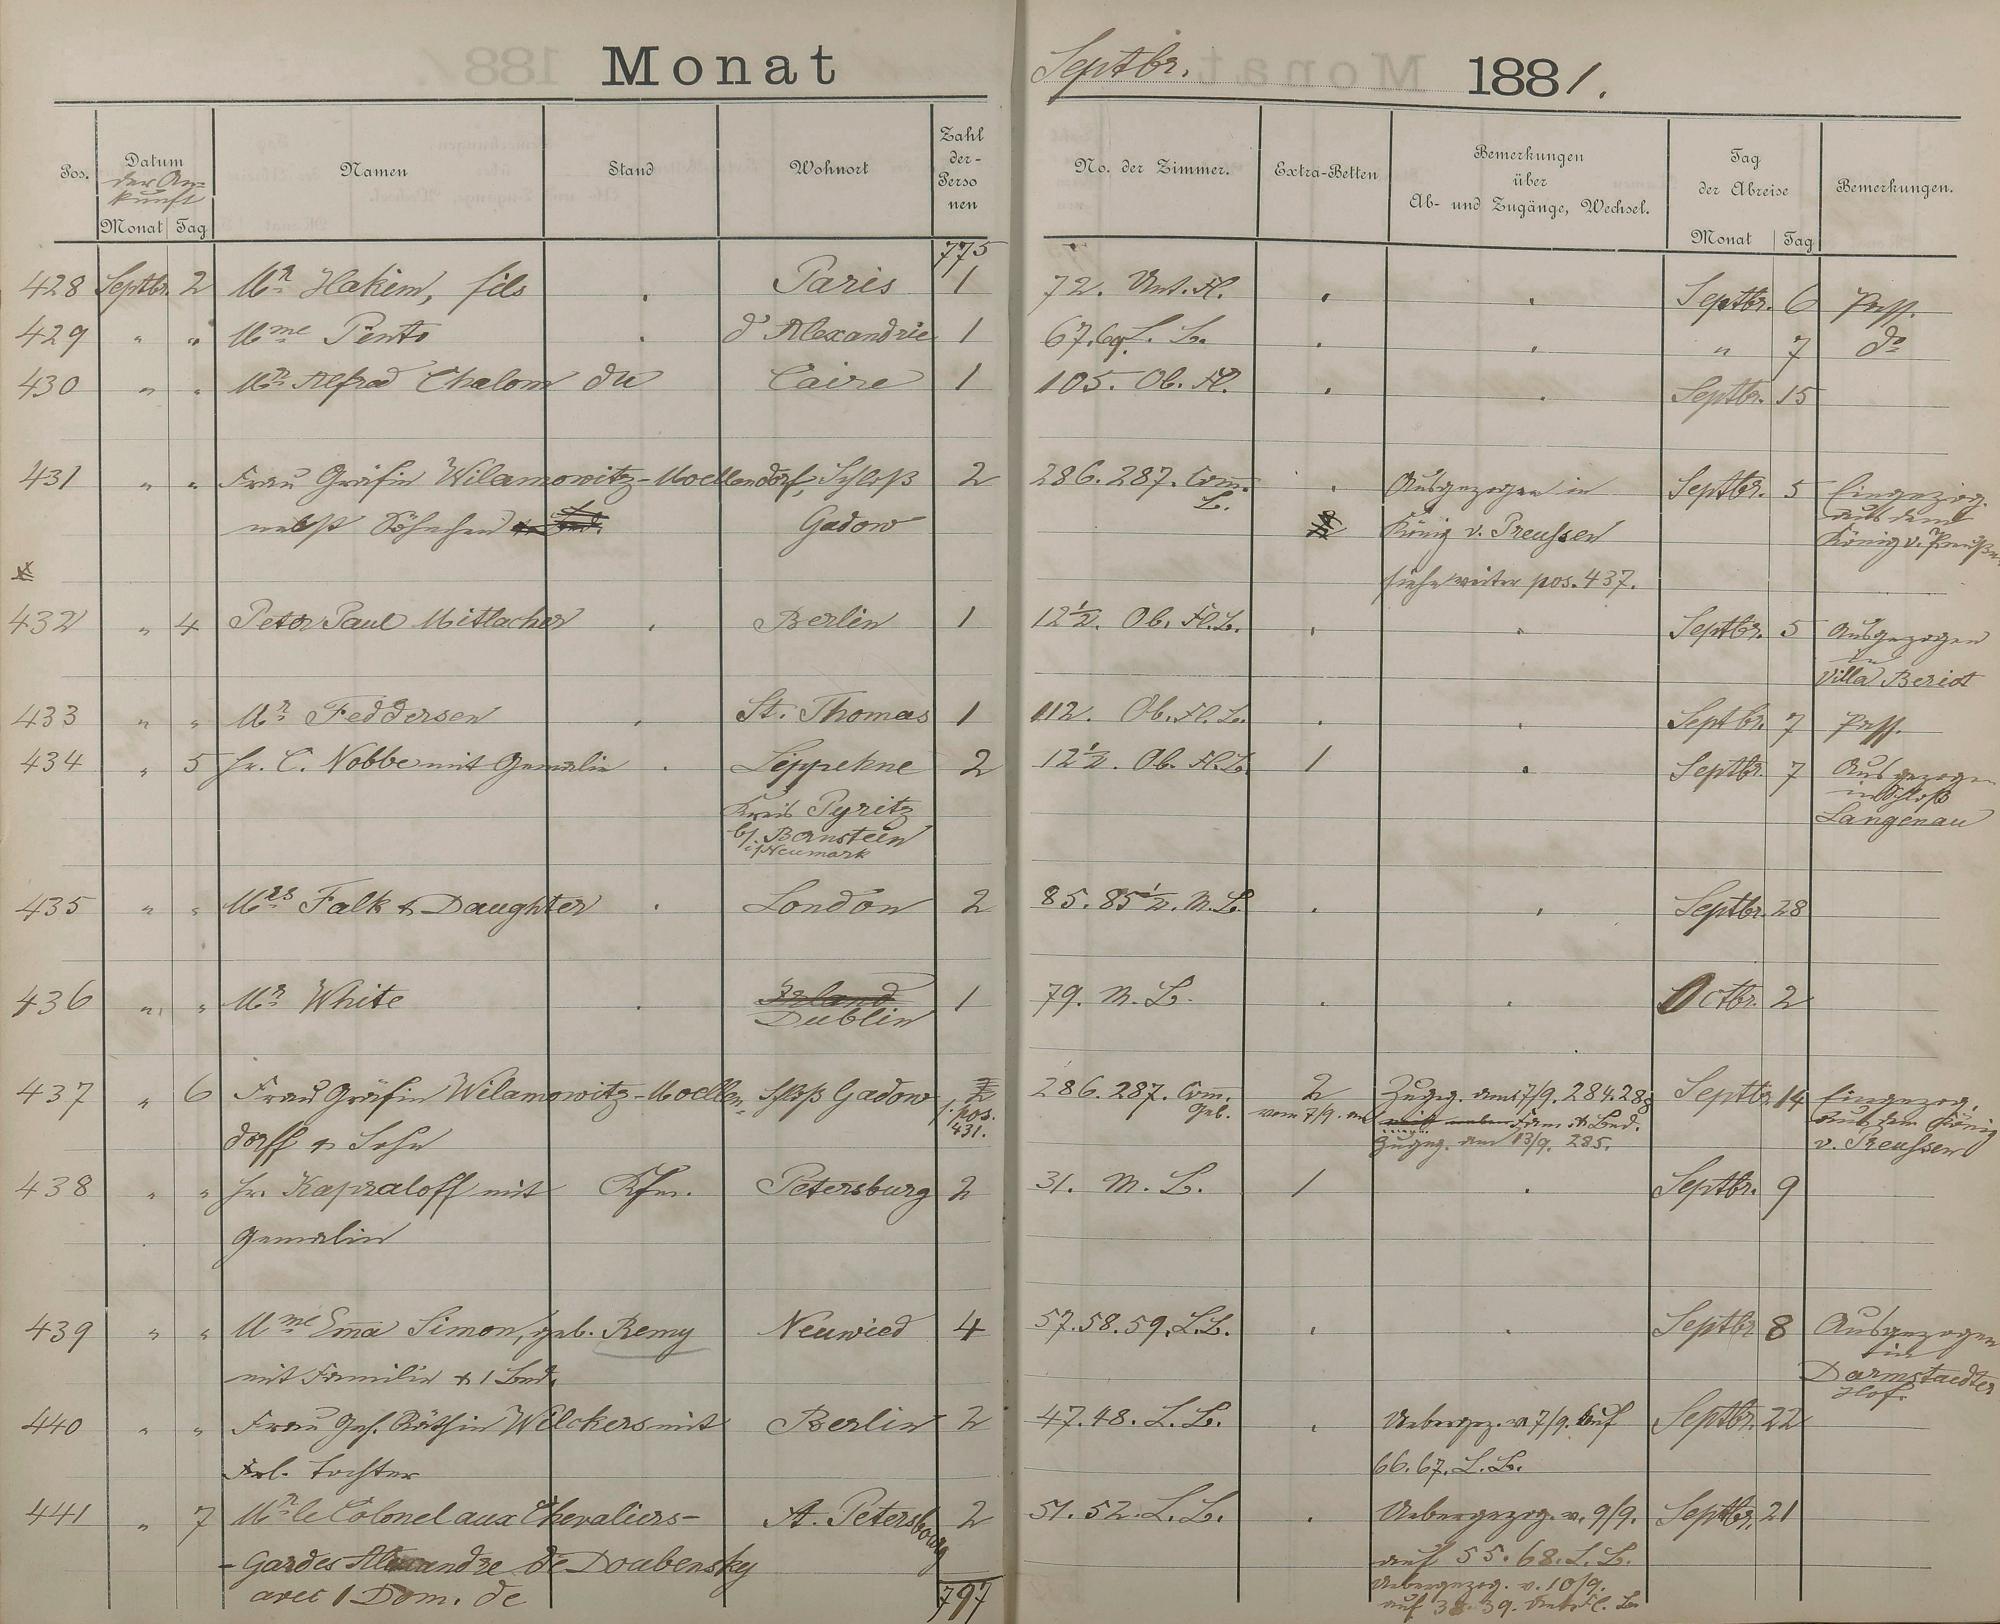 Monat Septbr. 1881.
Pos. Datum der Ankunft Namen Stand Wohnort Zahl der Personen No. der Zimmer. Extra-Betten Bemerkungen über Ab- und Zugänge, Wechsel. Tag der Abreise Bemerkungen.
Monat Tag Monat Tag
775
428 Septbr. 2 Mr. Hakim, fils Paris 1 72. Unt. Fl. Septbr. 6 Pass.
429 " " Mme Pinto d'Alexandrie 1 67.69. L. B. " 7 do
430 " " Mr. Alfred Chalom du Caire 1 105. Ob. Fl. Septbr. 15
431 " " Frau Gräfin Wilamowitz-Moellendorf, Schloß 2 286. 287. Com. Ausgezogen in Septbr. 5 Eingezog.
nebst Söhnchen Gadow B. König v. Preussen aus dem
siehe weiter pos. 437. König v. Preußen
432 " 4 Peter Paul Mitlacher Berlin 1 12½. Ob. Fl. B. Septbr. 5 Ausgezogen
in
Villa Beriot
433 " " Mr. Feddersen St. Thomas 1 112. Ob. Fl. B. Septbr. 7 Pass.
434 " 5 Hr. C. Nobbe mit Gemalin Leppehne 2 12½. Ob. Fl. B. 1 Septbr. 7 Ausgezogen
Kreis Pyritz in Schloß
b/. Bernstein Langenau
i/Neumark
435 " " Mrs Falk & Daughter London 2 85. 85½. M. B. Septbr. 28
436 " " Mr. White Irland 1 79. M. B. Octbr. 2
Dublin
437 " 6 Frau Gräfin Wilamowitz-Moellen- Schloß Gadow 286. 287. Com. 2 Zugez. am 7/9. 284. 288 Septbr 14 Eingezog.
dorff & Sohn pos. 431. Geb. vom 7/9. an Fam. & Bed. aus dem König
Zugez. am 13/9. 285. v. Preussen
438 " " Hr. Kapraloff mit Kfm. Petersburg 2 31. M. B. 1 Septbr. 9
Gemalin
439 " " Mme Emma Simon, geb. Remy Neuwied 4 57. 58. 59. L. B. Septbr 8 Ausgezogen
mit Familie & 1 Bed. in
Darmstaedter
Hof.
440 " " Frau Geh. Räthin Wilckers mit Berlin 2 47. 48. L. B. Uebergez. v. 7/9. auf Septbr. 22
Frl. Tochter 66. 67. L. B.
441 " 7 Mr. le Colonel aux Chevaliers- St. Petersbourg 2 51. 52. L. B. Uebergezog. v. 9/9. Septbr. 21
-Gardes Alexandre de Doubensky auf 55. 68. L. B.
avec 1 Dom. de 797 Uebergezog. v. 10/9.
auf 38. 39. Unt. Fl. B.